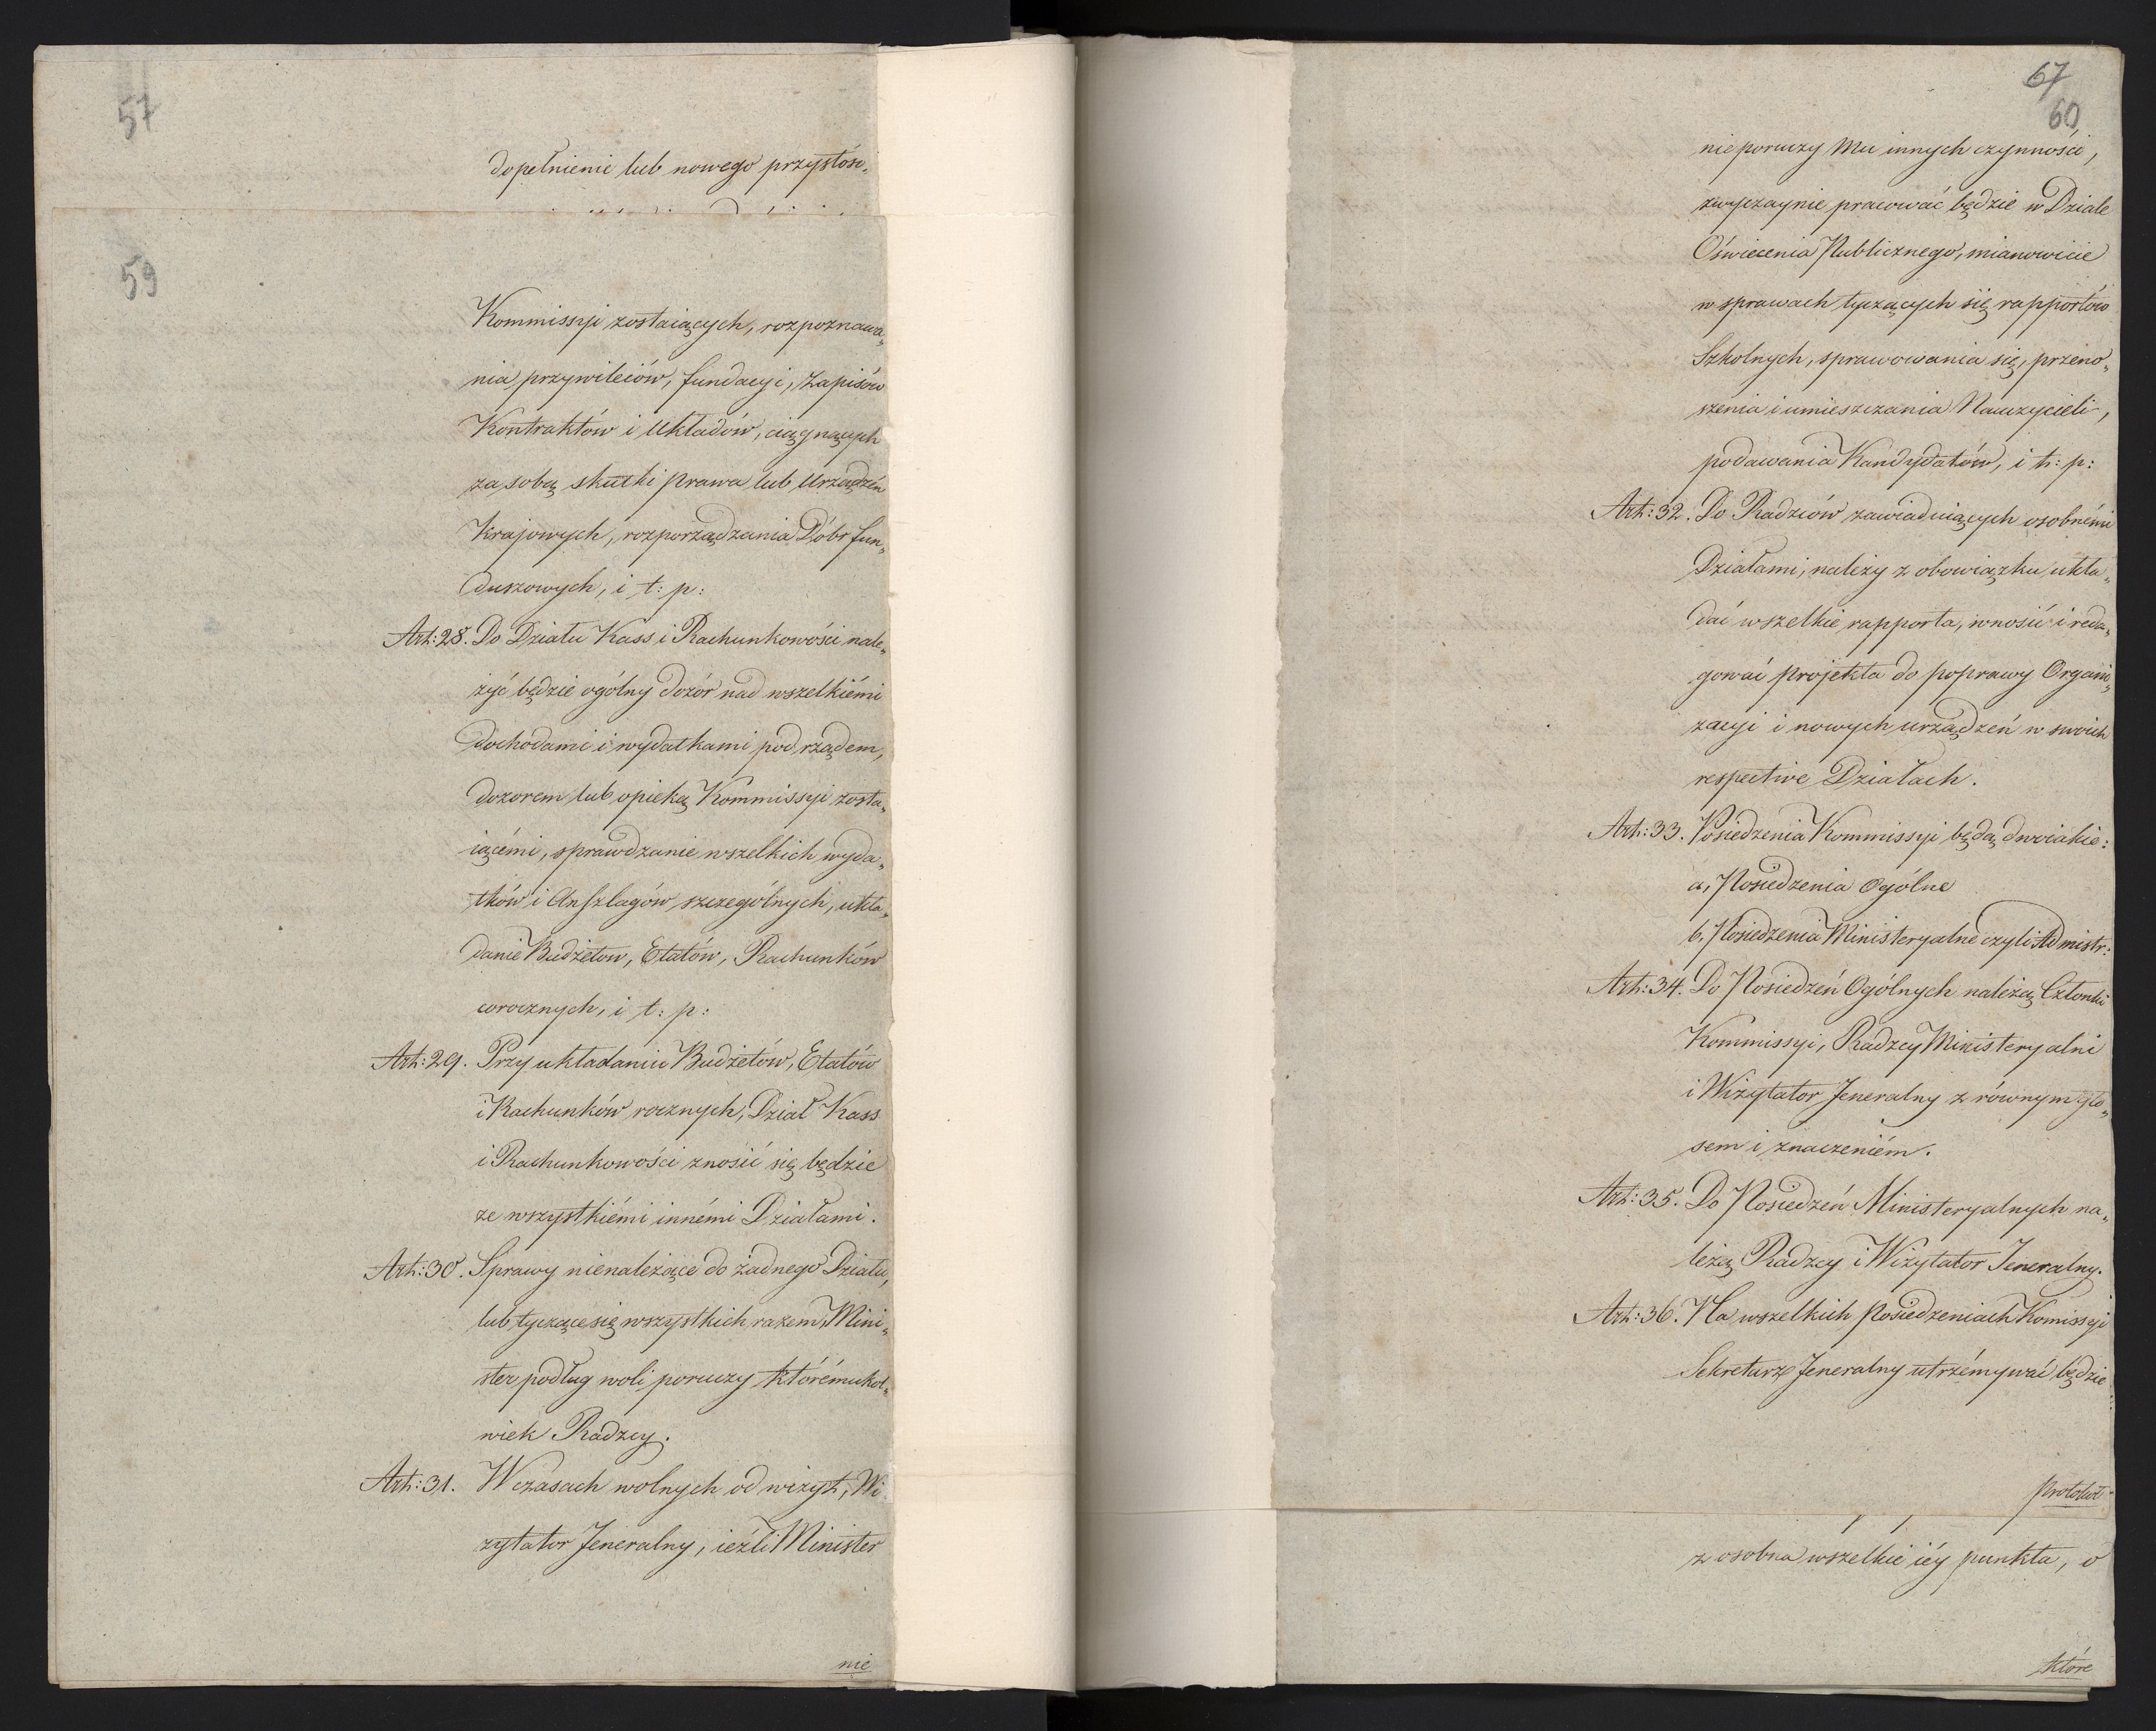 57
dopełnienie lub nowego przystóso„
59
Kommissyi zostaiących, rozpoznawa„
nia przywileiów, fundacyi, Zapisów
Kontraktów i Układów, ciągnących
za sobą skutki prawa lub Urządzeń
Krajowych, rozporządzania Dóbr fun„
duszowych, i t: p:
Art: 28. Do Działu Kass i Rachunkowości nale„
żyć będzie ogólny dozór nad wszelkiémi
dochodami i wydatkami pod rządem,
dozorem lub opieką Kommissyi zosta„
iącémi, sprawdzanie wszelkich wyda„
tków i Anszlagów szczególnych, ukła„
danie Budżetow, Etatów, Rachunków
corocznych, i t: p:
Art: 29. Przy układaniu Budżetów, Etatów
i Rachunków rocznych, Dział Kass
i Rachunkowości znosić się będzie
ze wszystkiémi innémi Działami.
Art: 30. Sprawy nienależące do żadnego Działu,
lub tyczące się wszystkich razem, Mini„
ster podług woli poruczy którémukol„
wiek Radzcy.
Art: 31. W czasach wolnych od wizyt, Wi
zytator Jeneralny, ieźli Minister
nie
67
60
nie poruczy Mu innych czynności,
zwyczaynie pracować będzie w Dziale
Oświecenia Publicznego, mianowicie
w sprawach tyczących się rapportów
Szkolnych, sprawowania się, przeno„
szenia i umieszczania Nauczycieli,
podawania Kandydatów, i t: p:
Art: 32. Do Radzców zawiaduiących osobnémi
Działami, należy z obowiązku ukła„
dać wszelkie rapporta, wnosić i reda„
gować projekta do poprawy Organi„
zacyi i nowych urządzeń w swoich
respective Działach.
Art: 33. Posiedzenia Kommissyi będą dwoiakie:
a, Posiedzenia Ogólne
b, Posiedzenia Ministeryalne czyli Admistr:
Art: 34. Do Posiedzeń Ogólnych należą Członki
Kommissyi, Radzcy Ministeryalni
i Wizytator Jeneralny z równym gło„
sem i znaczeniém.
Art: 35. Do Posiedzeń Ministeryalnych na„
leżą Radzcy i Wizytator Jeneralny.
Art: 36. Na wszelkich Posiedzeniach Komissyi
Sekretarz Jeneralny utrzémywać będzie
Protokół
z osobna wszelkie iéy punkta, o
które